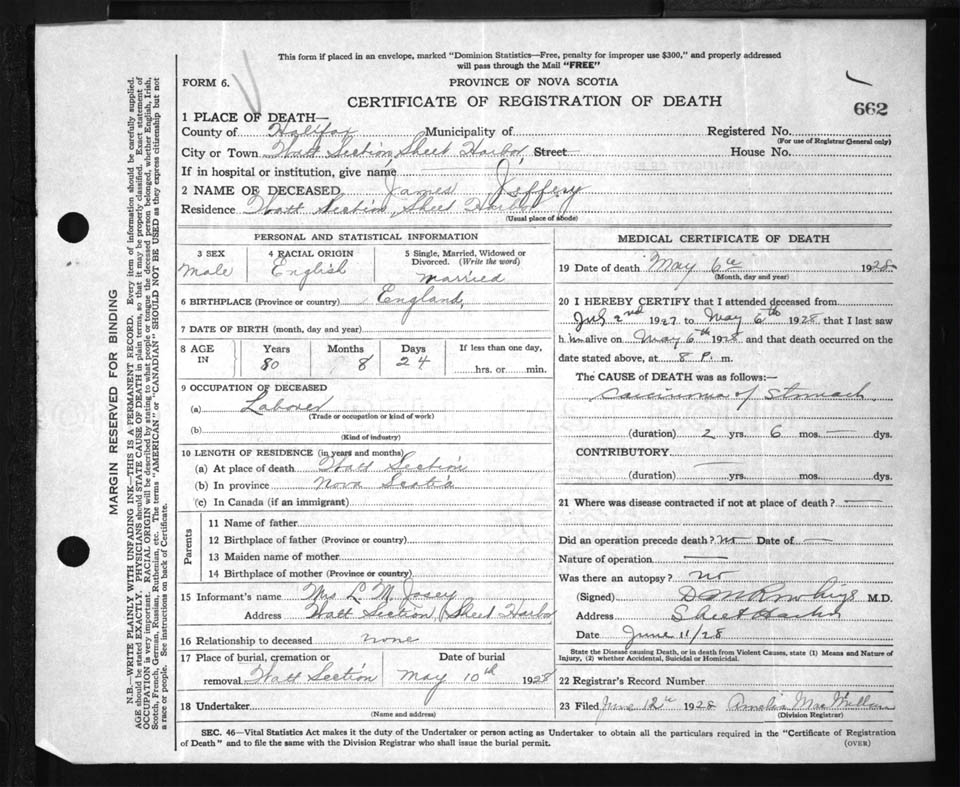 This form if placed in an envelope, marked "Dominion Statistics—Free, penalty for improper use $300," and properly addressed
will pass through the Mail "FREE"
FORM 6.
PROVINCE OF NOVA SCOTIA
CERTIFICATE OF REGISTRATION OF DEATH
662
1 PLACE OF DEATH—
County of Halifax Municipality of Registered No.
(For use of Registrar General only)
City or Town Watt Section, Sheet Harbor, Street House No.
If in hospital or institution, give name
2 NAME OF DECEASED James Jeffery
Residence Watt Section, Sheet Harbor
(Usual place of abode)
PERSONAL AND STATISTICAL INFORMATION
3 SEX 4 RACIAL ORIGIN 5 Single, Married, Widowed or
Divorced. (Write the word)
Male English Married
6 BIRTHPLACE (Province or country) England,
7 DATE OF BIRTH (month, day and year)
8 AGE IN Years Months Days If less than one day,
80 8 24 hrs. or min.
9 OCCUPATION OF DECEASED
(a) Laborer
(Trade or occupation or kind of work)
(b)
(Kind of industry)
10 LENGTH OF RESIDENCE (in years and months)
(a) At place of death Watt Section
(b) In province Nova Scotia
(c) In Canada (if an immigrant)
Parents
11 Name of father
12 Birthplace of father (Province or country)
13 Maiden name of mother
14 Birthplace of mother (Province or country)
15 Informant's name Mrs L. M. Josey
Address Watt Section, Sheet Harbor
16 Relationship to deceased none
17 Place of burial, cremation or Date of burial
removal Watt Section May 10th 1928
18 Undertaker
(Name and address)
MEDICAL CERTIFICATE OF DEATH
19 Date of death May 6th 1928
(Month, day and year)
20 I HEREBY CERTIFY that I attended deceased from
2nd 1927 to May 6th 1928 that I last saw
h im alive on May 6th 1928 and that death occurred on the
date stated above, at 8 P. m.
The CAUSE of DEATH was as follows:—
Carcinoma of Stomach
(duration) 2 yrs. 6 mos. — dys.
CONTRIBUTORY
(duration) — yrs. mos. dys.
21 Where was disease contracted if not at place of death? —
Did an operation precede death? no Date of —
Nature of operation —
Was there an autopsy? no
(Signed) M.D.
Address Sheet Harbor
Date June 11/28
State the Disease causing Death, or in death from Violent Causes, state (1) Means and Nature of
Injury, (2) whether Accidental, Suicidal or Homicidal.
22 Registrar's Record Number
23 Filed June 12th 1928 Amelia MacMillan
(Division Registrar)
SEC. 46—Vital Statistics Act makes it the duty of the Undertaker or person acting as Undertaker to obtain all the particulars required in the "Certificate of Registration
of Death" and to file the same with the Division Registrar who shall issue the burial permit.
(OVER)
MARGIN RESERVED FOR BINDING
N.B.—WRITE PLAINLY WITH UNFADING INK—THIS IS A PERMANENT RECORD. Every item of information should be carefully supplied.
AGE should be stated EXACTLY. PHYSICIANS should STATE CAUSE OF DEATH in plain terms, so that it may be properly classified. Exact statement of
OCCUPATION is very important. RACIAL ORIGIN will be described by stating to what people or tongue the deceased person belonged, whether English, Irish,
Scotch, French, German, Russian, Ruthenian, etc. The terms "AMERICAN" or "CANADIAN" SHOULD NOT BE USED as they express citizenship but not
a race or people. See instructions on back of Certificate.